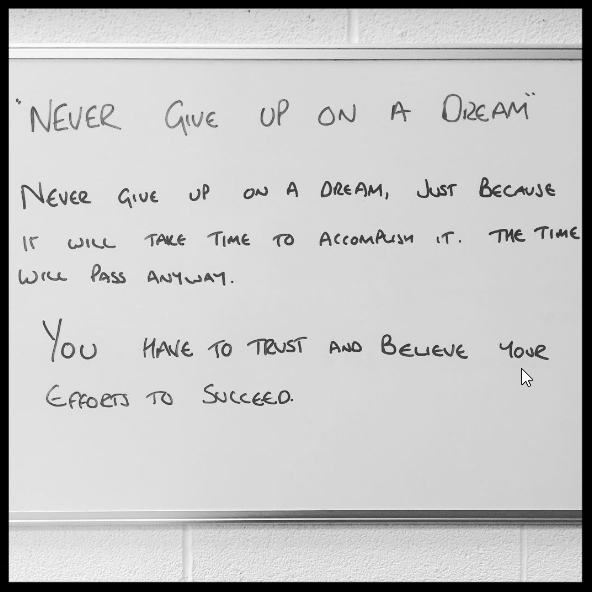 "NEVER GIVE UP ON A DREAM"
NEVER GIVE UP ON A DREAM, JUST BECAUSE
IT WILL TAKE TIME TO ACCOMPLISH IT. THE TIME
WILL PASS ANYWAY.
YOU HAVE TO TRUST AND BELIEVE YOUR
EFFORTS TO SUCCEED.